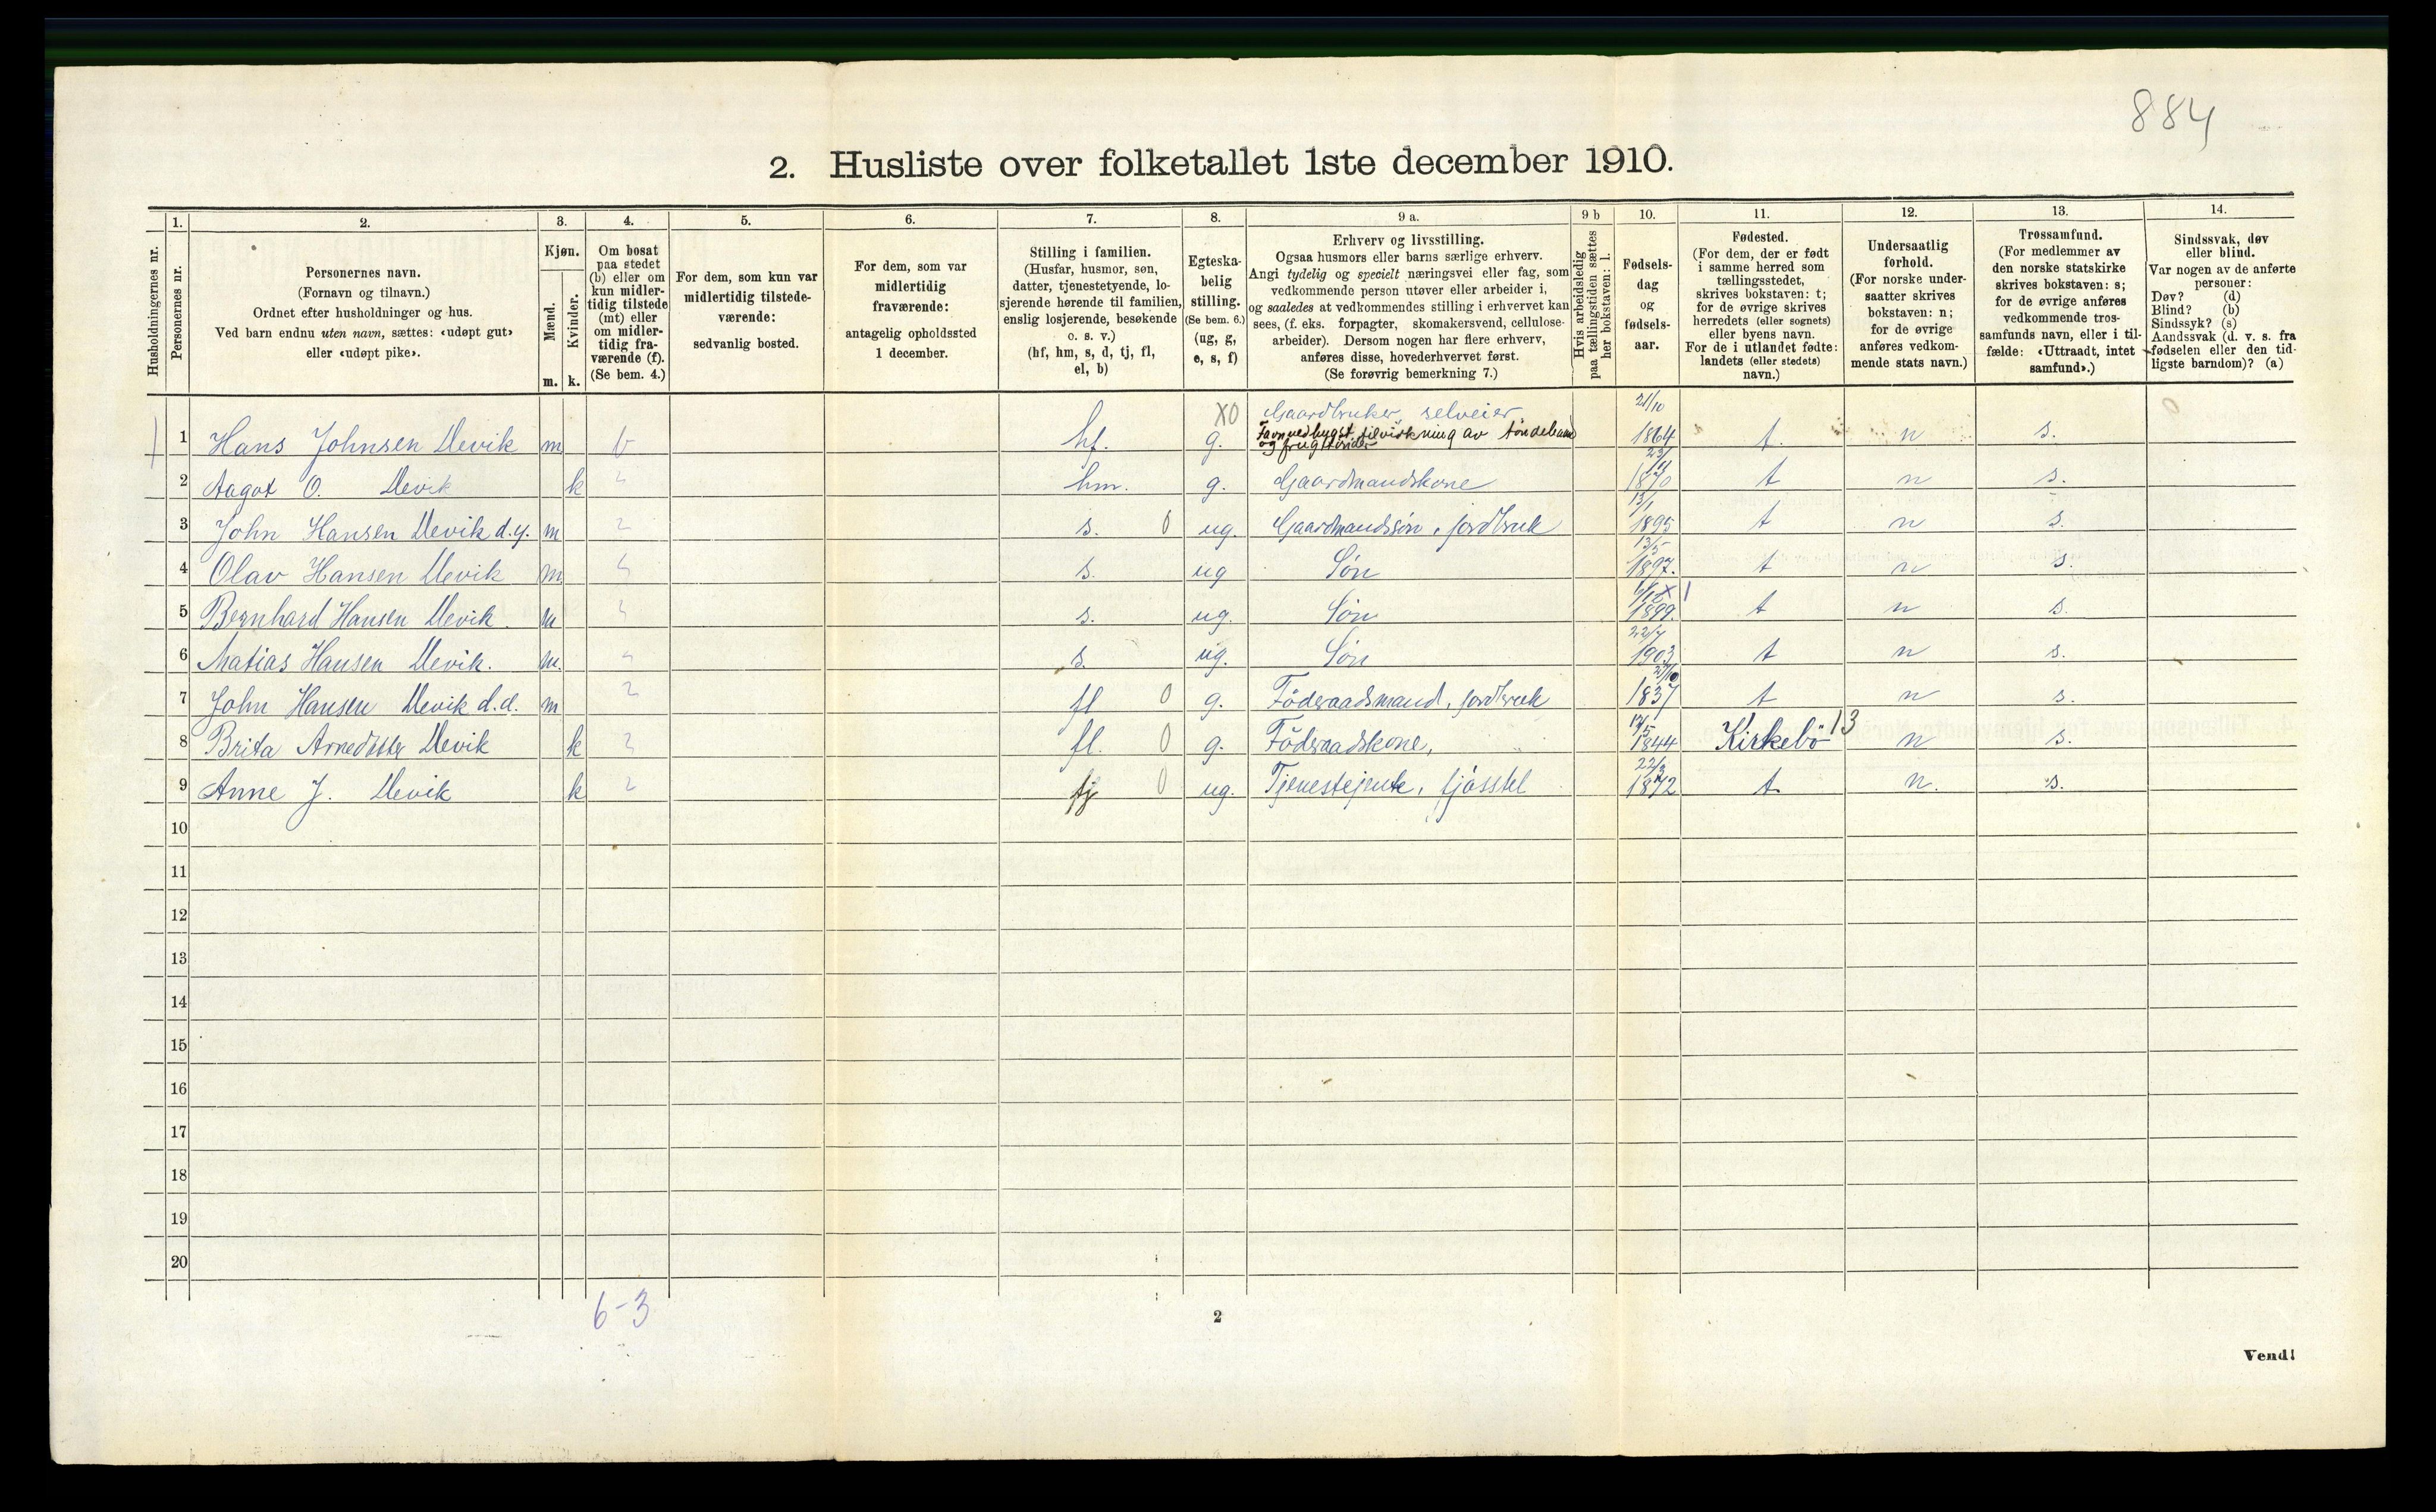 884
2. Husliste over folketallet 1ste december 1910.
Husholdningernes nr.
1.
Personernes nr.
2.
Personernes navn.
(Fornavn og tilnavn.)
Ordnet efter husholdninger og hus.
Ved barn endnu uten navn, sættes: «udøpt gut»
eller «udøpt pike».
3.
Kjøn.
Mænd.
Kvinder.
m. k.
4.
Om bosat
paa stedet
(b) eller om
kun midler-
tidig tilstede
(mt) eller
om midler-
tidig fra-
værende (f).
(Se bem. 4.)
5.
For dem, som kun var
midlertidig tilstede-
værende:
sedvanlig bosted.
6.
For dem, som var
midlertidig
fraværende:
antagelig opholdssted
1 december.
7.
Stilling i familien.
(Husfar, husmor, søn,
datter, tjenestetyende, lo-
sjerende hørende til familien,
enslig losjerende, besøkende
o. s. v.)
(hf, hm, s, d, tj, fl,
el, b)
8.
Egteska-
belig
stilling.
(Se bem. 6.)
(ug, g,
e, s, f)
9 a.
Erhverv og livsstilling.
Ogsaa husmors eller barns særlige erhverv.
Angi tydelig og specielt næringsvei eller fag, som
vedkommende person utøver eller arbeider i,
og saaledes at vedkommendes stilling i erhvervet kan
sees, (f. eks. forpagter, skomakersvend, cellulose-
arbeider). Dersom nogen har flere erhverv,
anføres disse, hovederhvervet først.
(Se forøvrig bemerkning 7.)
9 b
Hvis arbeidsledig
paa tællingstiden sættes
her bokstaven: l.
10.
Fødsels-
dag
og
fødsels-
aar.
11.
Fødested.
(For dem, der er født
i samme herred som
tællingsstedet,
skrives bokstaven: t;
for de øvrige skrives
herredets (eller sognets)
eller byens navn.
For de i utlandet fødte:
landets (eller stedets)
navn.)
12.
Undersaatlig
forhold.
(For norske under-
saatter skrives
bokstaven: n;
for de øvrige
anføres vedkom-
mende stats navn.)
13.
Trossamfund.
(For medlemmer av
den norske statskirke
skrives bokstaven: s;
for de øvrige anføres
vedkommende tros-
samfunds navn, eller i til-
fælde: «Uttraadt, intet
samfund».)
14.
Sindssvak, døv
eller blind.
Var nogen av de anførte
personer:
Døv? (d)
Blind? (b)
Sindssyk? (s)
Aandssvak (d. v. s. fra
fødselen eller den tid-
ligste barndom)? (a)
X0 Gaardbruker, selveier 21/10
1 Hans Johnsen Devik m b hf. g. Favnvedhugst, tilvirkning av töndebaand 1864 t. n s.
2 Aagot O. Devik k hm. g. Gaardmandskone 1870 t n s.
3 John Hansen Devik d.y. m s. 0 ug. Gaardmandssøn, jordbruk 13/1 1895 t n s.
4 Olav Hansen Devik m s. ug Søn 13/5 1897. t n s.
5 Bernhard Hansen Devik. m s. ug. Søn 1899. t n s.
6 Matias Hansen Devik. m. s. ug. Søn 22/7 1903 t n s.
7 John Hansen Devik d.d. m fl 0 g. Föderaadsmand, jordbruk 27/10 1837 t n s.
8 Brita Arnedatter Devik k fl. 0 g. Föderaadskone, 1844 Kirkebö 13 n s.
9 Anne J. Devik k tj 0 ug. Tjenestejente, fjösstel 1872 t n. s.
10
11
12
13
14
15
16
17
18
19
20
6-3
2
Vend!